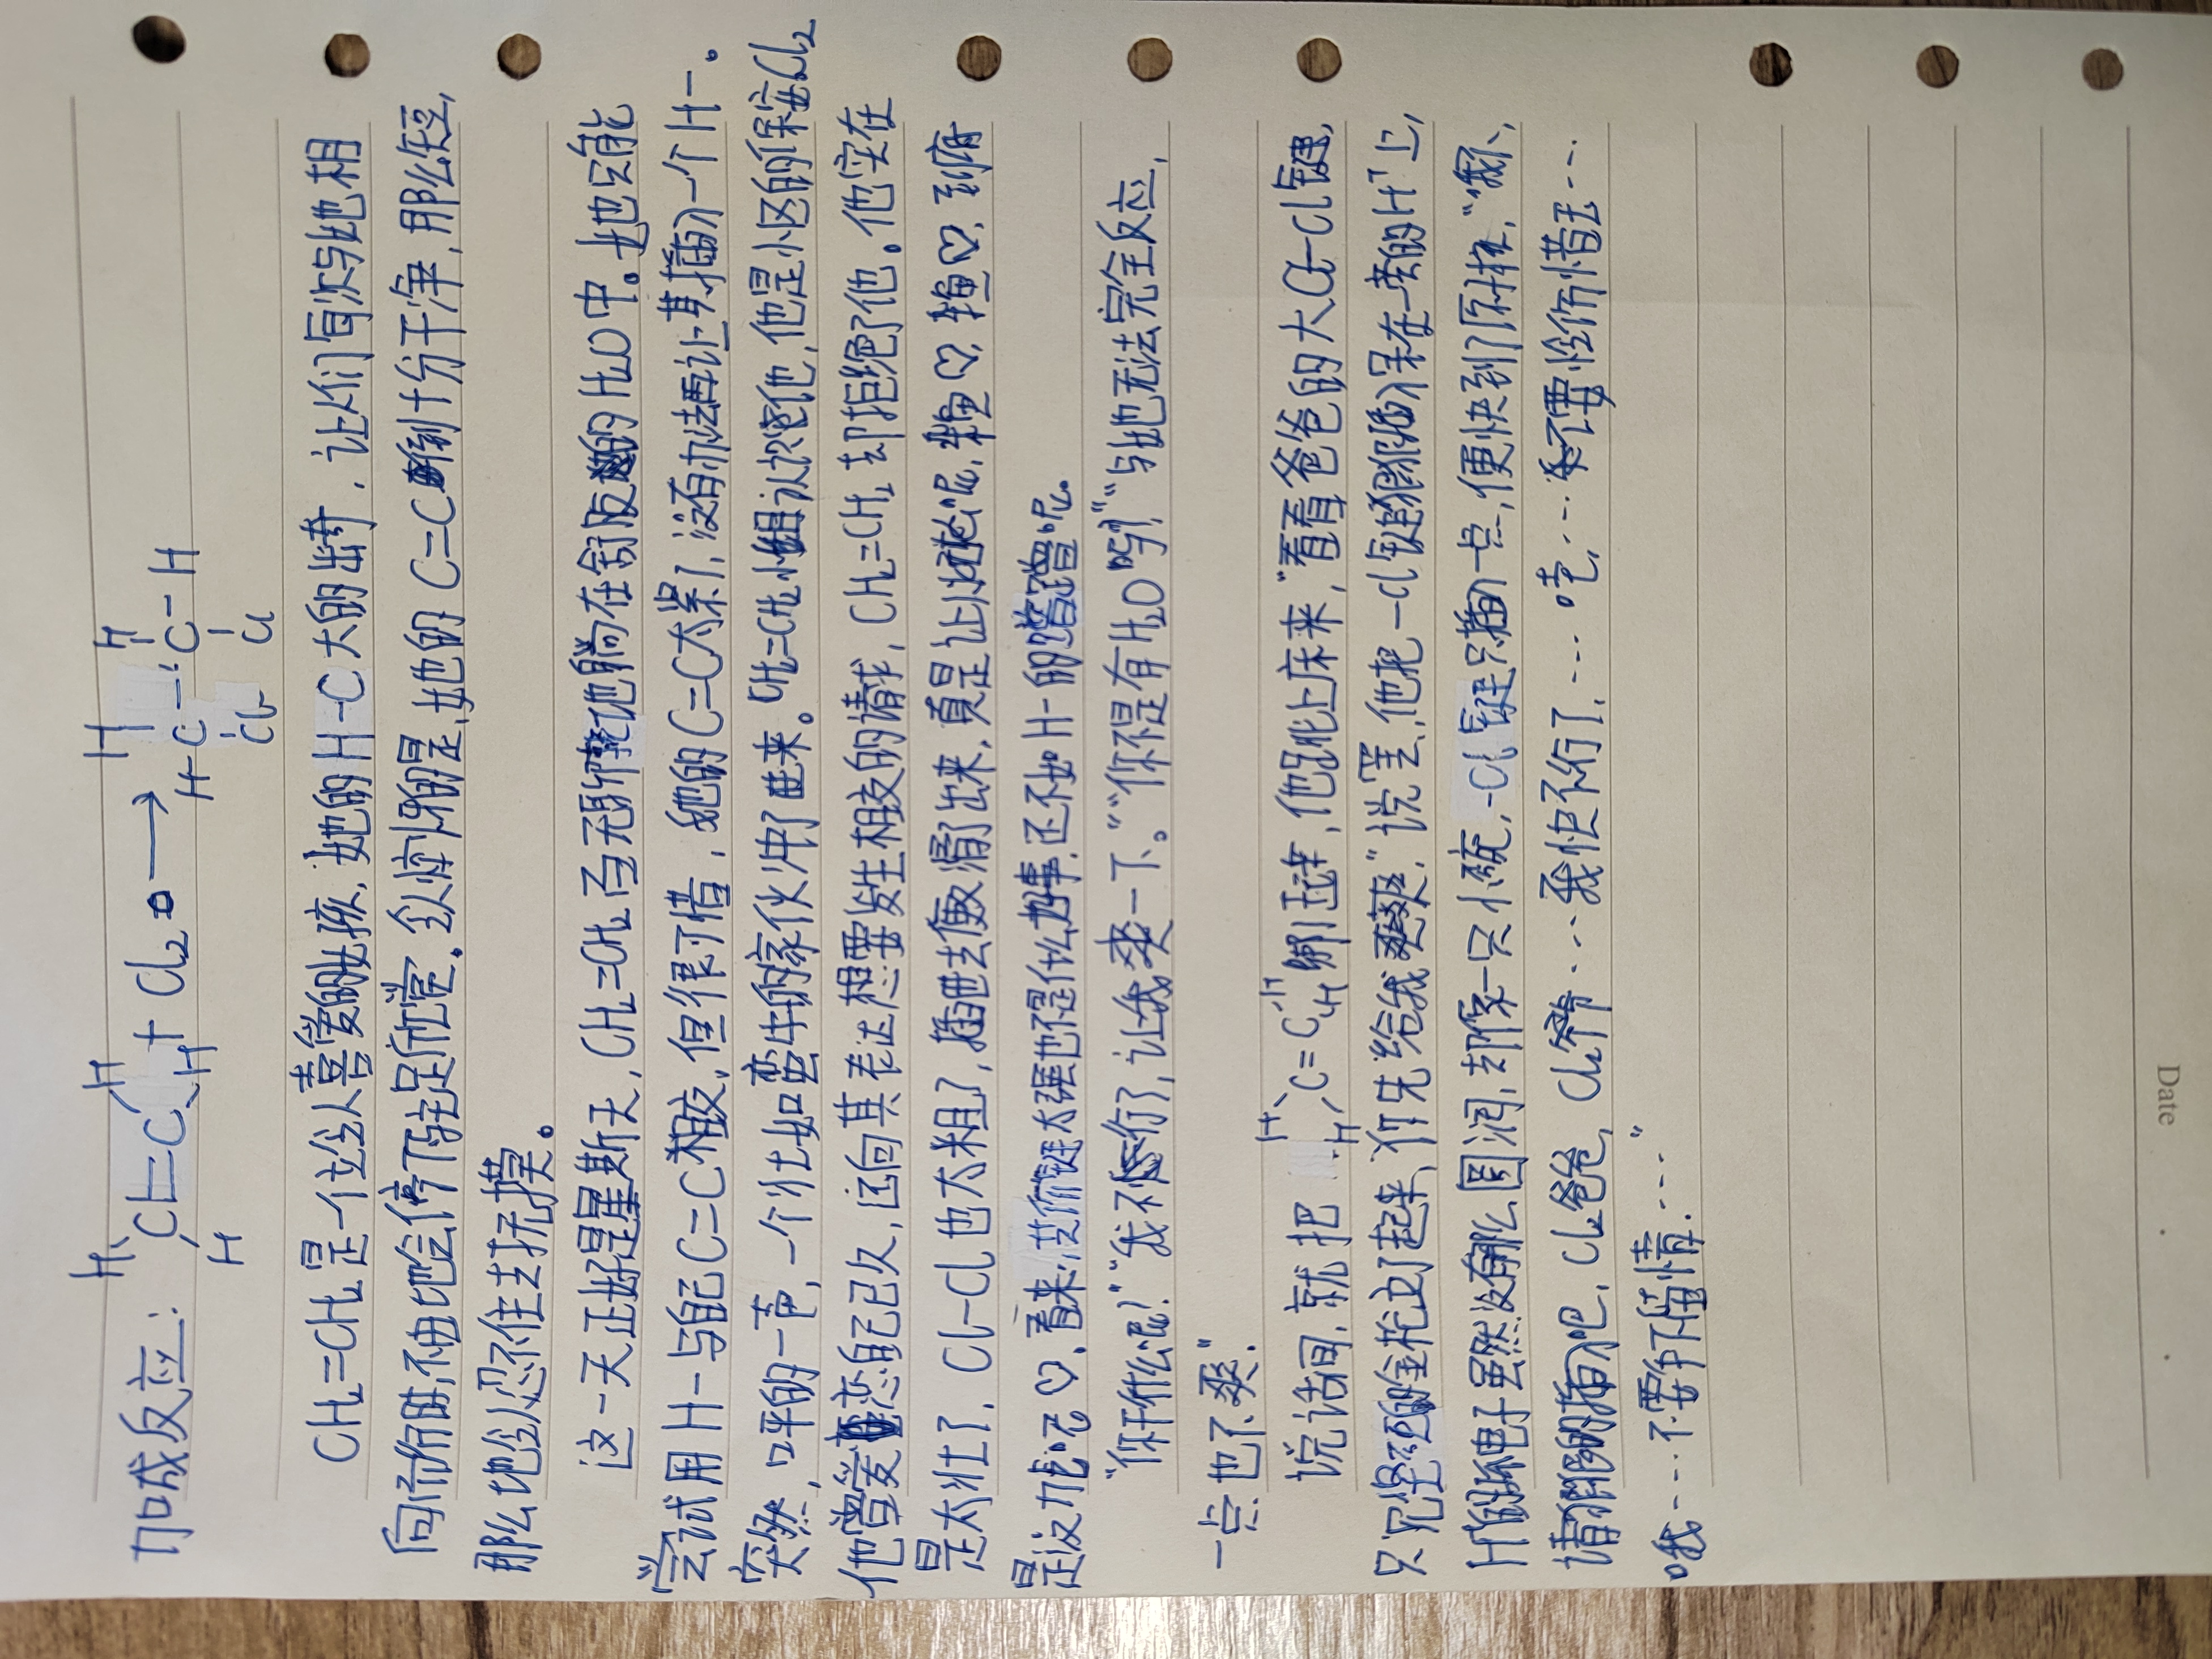 加成反应: H H C=C H H + Cl₂ → H H H-C-C-H Cl Cl
CH₂=CH₂是一位令人喜爱的女孩,她的H-C大的出奇,让人们每次与她相
向而行时,不由地会停下驻足欣赏。令人惊讶的是,她的C=C倒十分干净,那么短,
那么地令人忍不住去抚摸。
这一天正好是星斯天,CH₂=CH₂百无聊地躺在舒服的H₂O中。她只能
尝试用H-与自己C=C相交,但很可惜,她的C=C太紧了,没有办法再让其插入一个H-。
突然,呯的一声,一个壮如蛮牛的家伙冲了进来。CH₂=CH₂小姐认识他,他是小区的保安Cl₂
他曾爱恋自己已久,还向其表达想要发生相交的请求,CH₂=CH₂却拒绝了他。他实在
是太壮了,Cl-Cl也太粗了,插进去便又滑了出来,真是让人呢,♡,♡,到底
是没力呢♡,看来,共价键太强也不是什么好事,还不如H-的蹭蹭呢。
"你干什么呢?" "我不行了,让我爽一下。" "你不是有H₂O吗?" "与她无法完全反应,
一点也不爽."
说话间,就把 H H C=C H H 绑了起来,他跳上床来,"看看爸爸的大Cl-Cl键,
只见坚硬的金枪立了起来,你先给我爽爽,"说罢,他把-Cl键狠狠插入呆在一旁的H⁺上,
H⁺的电子虽然没有那么圆润,却像一只小碗,-Cl键只插入一点,便快到了原子核,"哦不,
请狠狠的插入吧,Cl₂爸爸,Cl₂爷爷…我快不行了,…,…不要怜香惜玉…
哦…不要手下留情.…"
Date